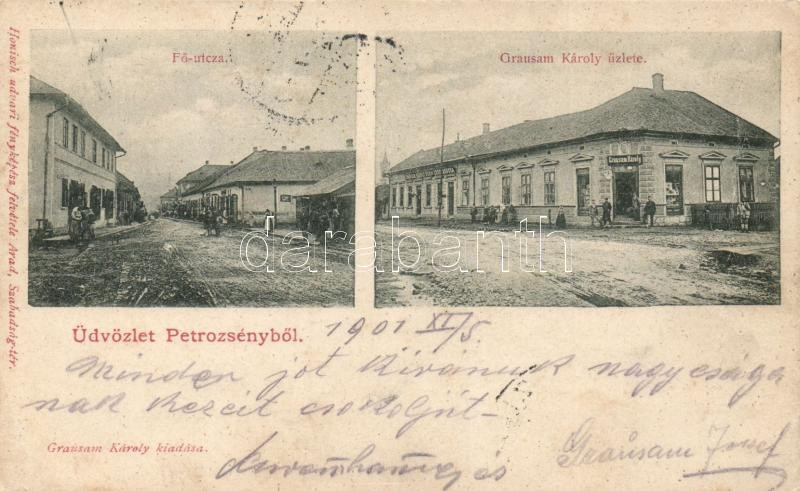 Fő-utcza.
Grausam Károly üzlete.
Grausam Károly
darabanth
Honisch udvari fényképész felvétele Arad, Szabadság-tér.
Üdvözlet Petrozsényből. 1901 XI/5
Minden jót kivánunk nagysága
nak kezeit csokoljuk
Grausam Károly kiadása.
és Grausam József